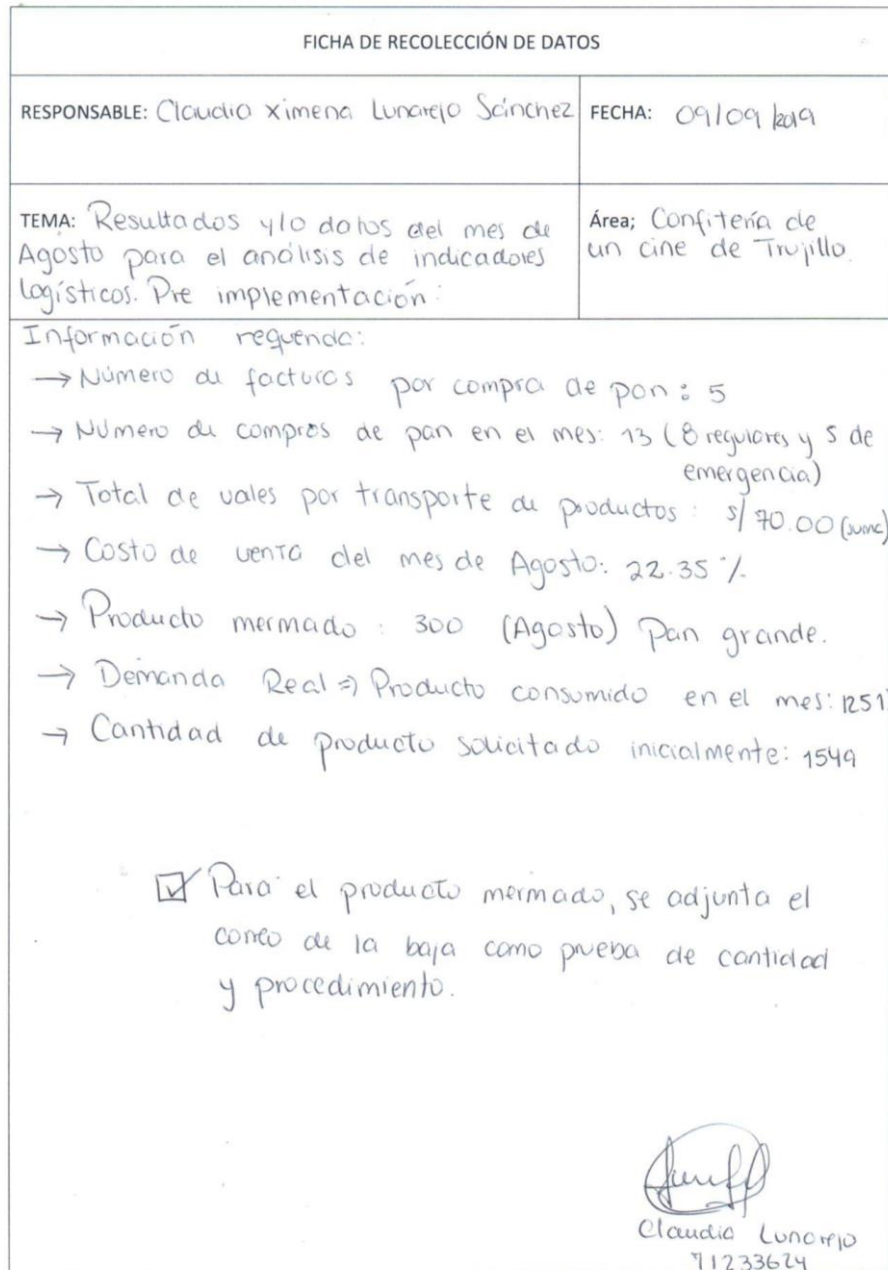 FICHA DE RECOLECCIÓN DE DATOS
RESPONSABLE: Claudia Ximena Lunarejo Sánchez
FECHA: 09/09/2019
TEMA: Resultados y/o datos del mes de
Agosto para el análisis de indicadores
logísticos. Pre implementación:
Área; Confitería de
un cine de Trujillo.
Información requerida:
→ Número de facturas por compra de pan: 5
→ Número de compras de pan en el mes: 13 (8 regulares y 5 de
emergencia)
→ Total de vales por transporte de productos: s/ 70.00 (suma)
→ Costo de venta del mes de Agosto: 22.35 %
→ Producto mermado: 300 (Agosto) Pan grande.
→ Demanda Real => Producto consumido en el mes: 1251
→ Cantidad de producto solicitado inicialmente: 1549
☑ Para el producto mermado, se adjunta el
correo de la baja como prueba de cantidad
y procedimiento.
Claudia Lunarejo
71233624